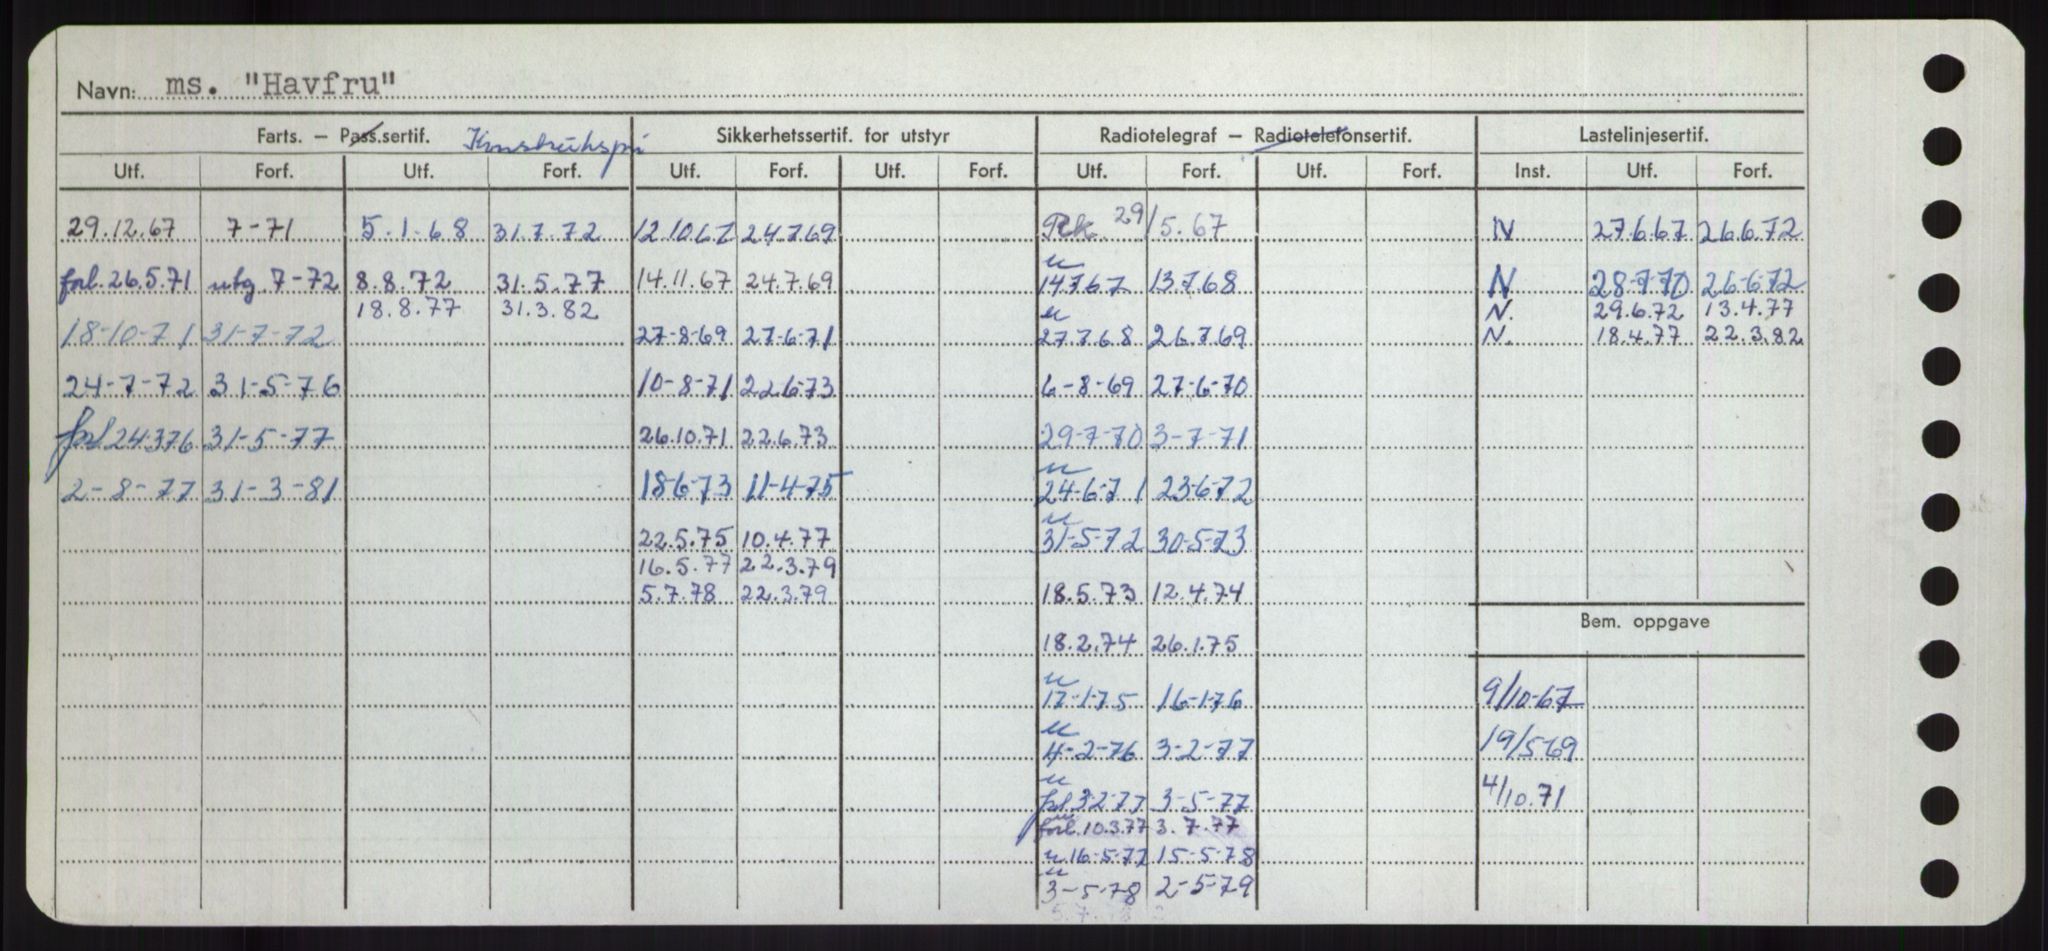 Navn: ms. "Havfru"
Farts. — Pass.sertif. Konstruksjon Sikkerhetssertif. for utstyr Radiotelegraf — Radiotelefonsertif. Lastelinjesertif.
Utf. Forf. Utf. Forf. Utf. Forf. Utf. Forf. Utf. Forf. Utf. Forf. Inst. Utf. Forf.
29.12.67 7-71 5.1.68 31.7.72 12.10.67 24.7.69 29/5.67 N 27.6.67 26.6.72
forl. 26.5.71 utg 7-72 8.8.72 31.5.77 14.11.67 24.7.69 u 14.7.67 13.7.68 N 28-7-70 26-6-72
18.8.77 31.3.82 N. 29.6.72 13.4.77
18-10-71 31-7-72 27-8-69 27-6-71 u 27.7.68 26.7.69 N. 18.4.77 22.3.82
24-7-72 31-5-76 10-8-71 22.6.73 6-8-69 27-6-70
forl 24.3.76 31-5-77 26.10.71 22.6.73 29-7-70 3-7-71
2-8-77 31-3-81 18-6-73 11-4-75 u 24-6-71 23-6-72
22.5.75 10.4.77 u 31-5-72 30-5-73
16.5.77 22.3.79
5.7.78 22.3.79 18.5.73 12.4.74
Bem. oppgave
18.2.74 26.1.75
u 17-1-75 16-1-76 9/10-67
u 4-2-76 3-2-77 19/5-69
u forl 3-2-77 3-5-77 4/10.71
forl. 10.3.77 3.7.77
u 16-5-77 15-5-78
u 3-5-78 2-5-79